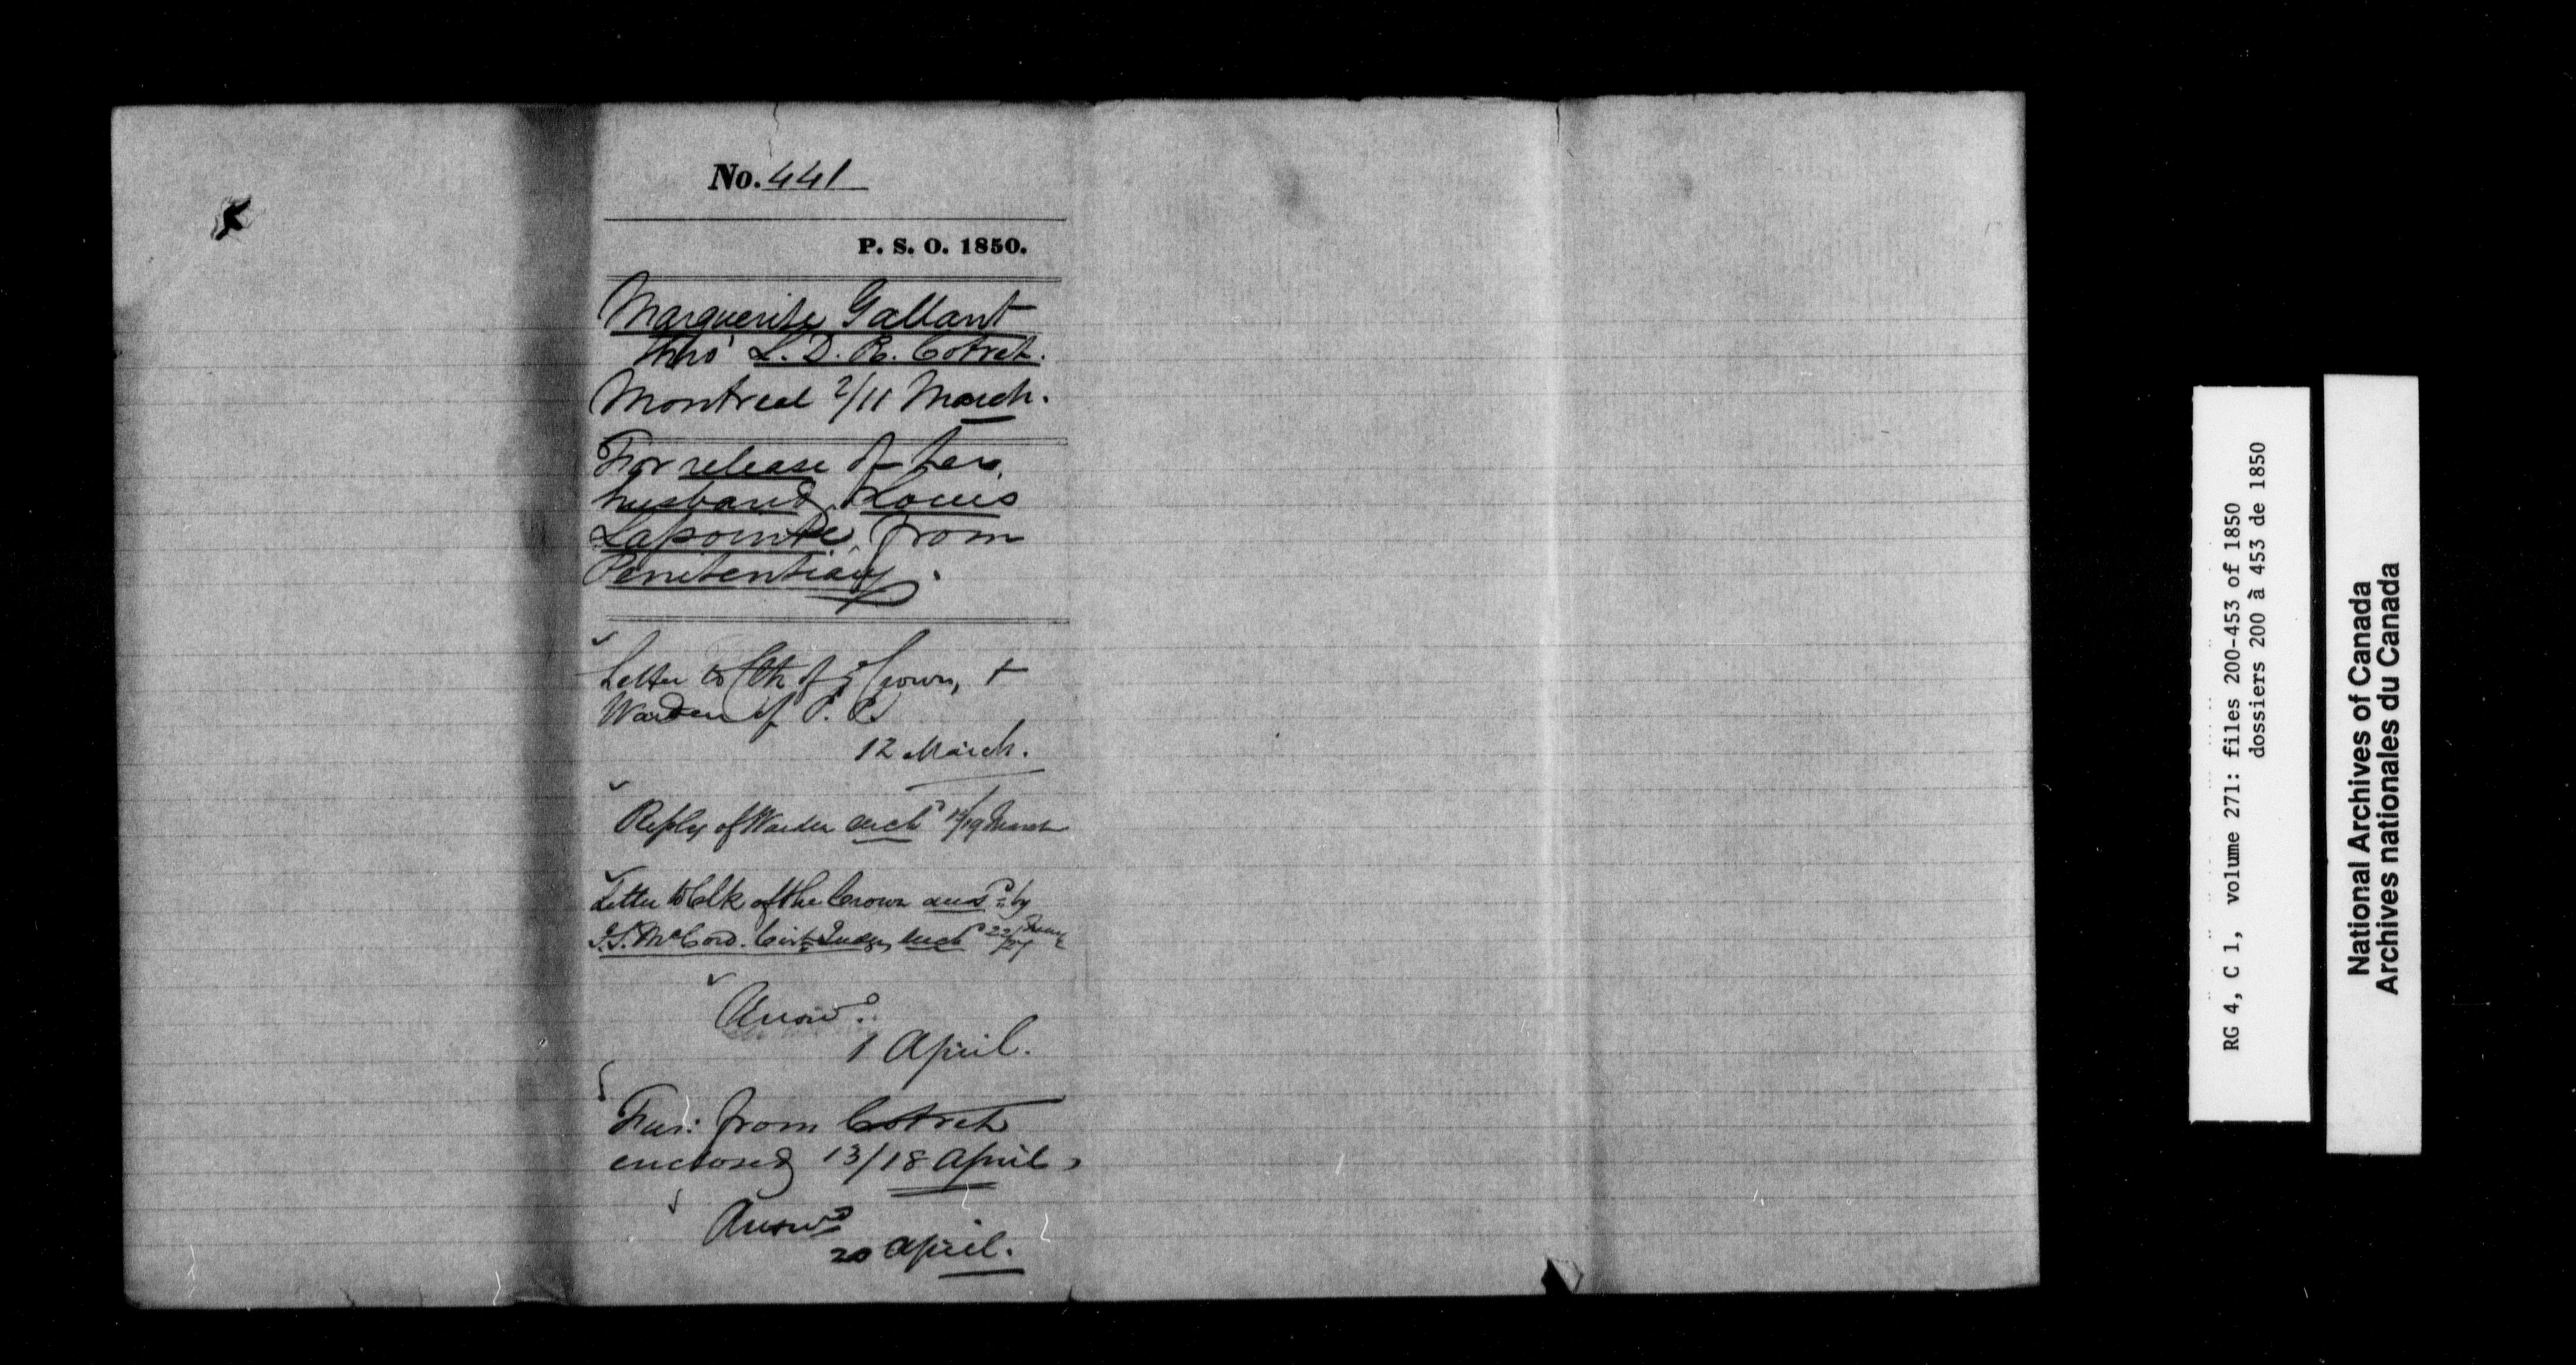 No. 441
P. S. O. 1850.
Marguerite Gallant
thro' L. D. R. Cotret.
Montreal 2/11 March.
For release of her
husband, Louis
Lapointe, from
Penitentiary.
Letter to Clk of ye Crown, +
Warden of P. P.
12 March.
Reply of Warden encd 14/19 March
Letter to Clk of the Crown ansd by
J.S. McCord. Cirt Judge, encd 22/27
Answd.
1 April.
Fur: from Cotret
enclosed 13/18 April,
Answd
20 April.
RG 4, C 1, volume 271: files 200-453 of 1850
dossiers 200 à 453 de 1850
National Archives of Canada
Archives nationales du Canada